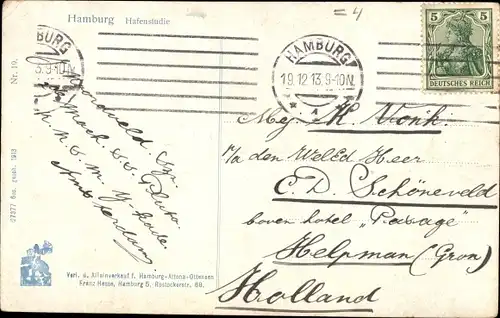 Hamburg Hafenstudie
=4
Nr. 19.
HAMBURG
19.12.13.9-10N.
5 5
DEUTSCHES REICH
Mej. K. Vonk.
p/a den WelEd Heer
C. D. Schöneveld
boven hotel „Passage"
Helpman (Gron)
Holland
Mach. s.s. Pluto.
K. N. S. M. Y-kade
Amsterdam.
27877 Ges. gesch. 1913
Verl. u. Alleinverkauf f. Hamburg-Altona-Ottensen
Franz Hesse, Hamburg 5, Rostockerstr. 68.